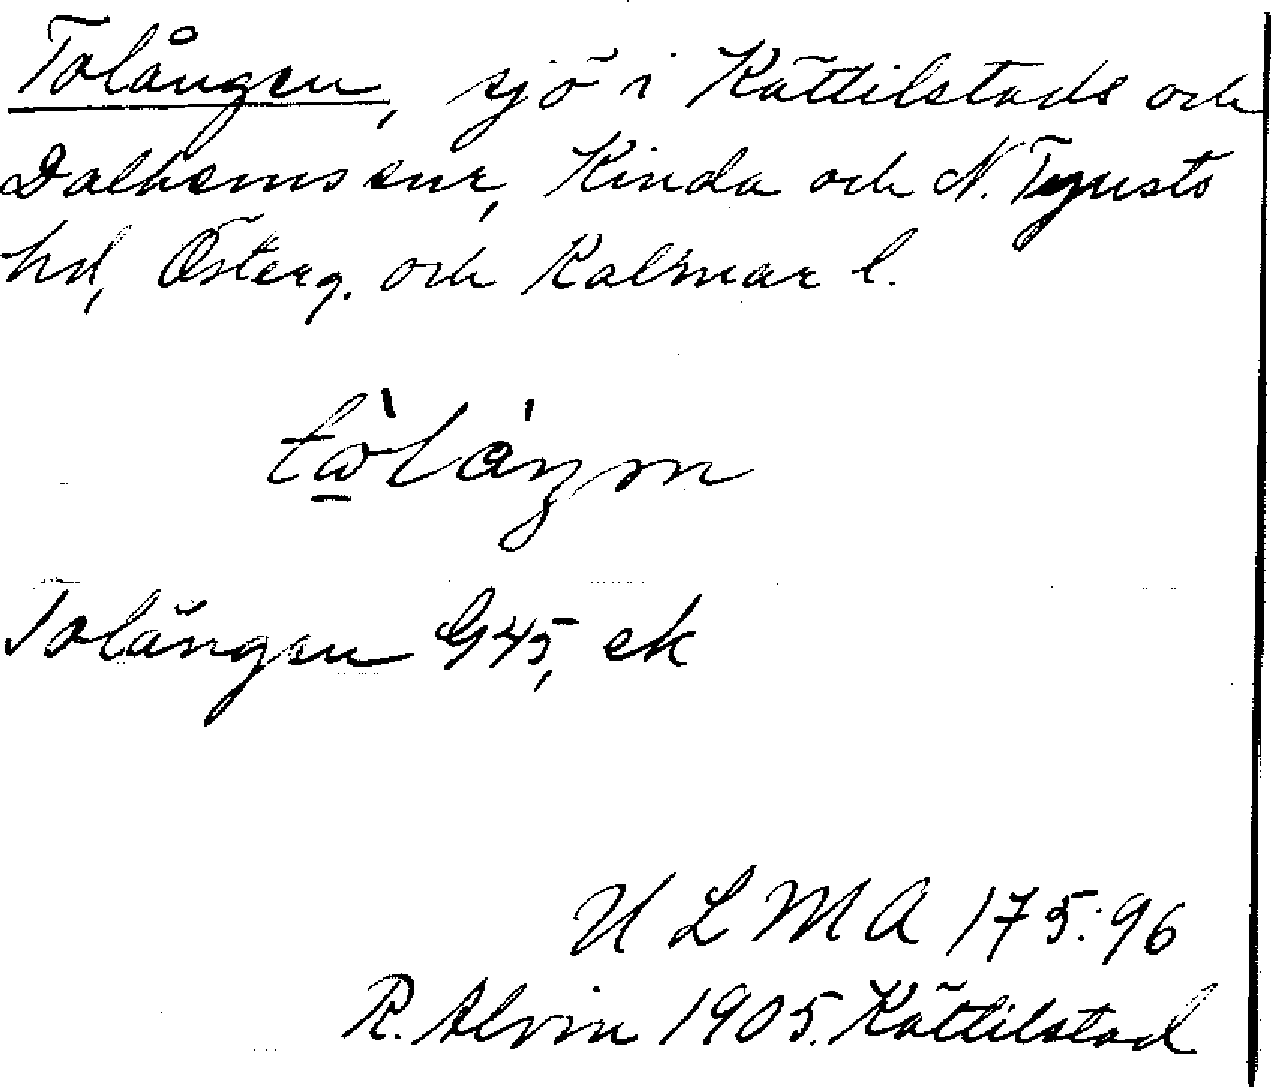 Tolången, sjö i Kättilstads och
Dalhems snr, Kinda och N. Tjusts
hd, Österg. och Kalmar l.
Tolången G45, ek
ULMA 175:96
R. Alvin 1905. Kättilstad